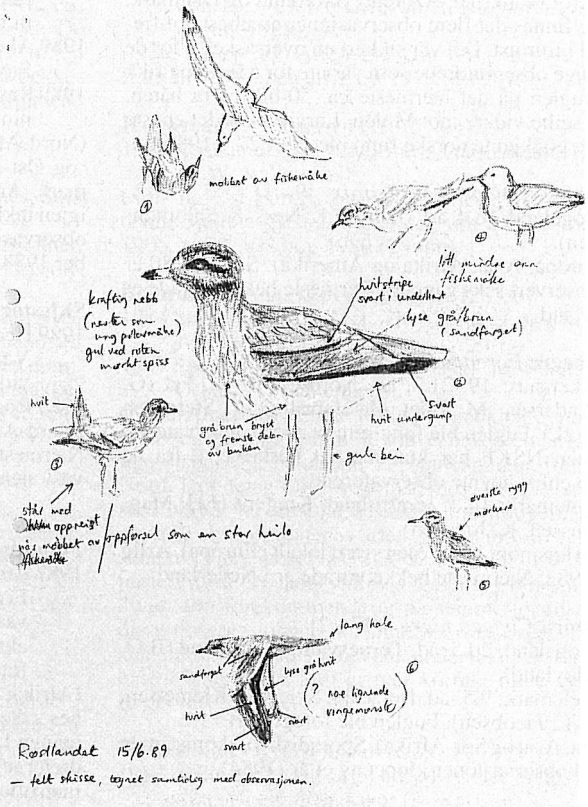 mobbet av fiskemåke
1
4
litt mindre enn
fiskemåke
kraftig nebb
(nesten som
ung polarmåke)
gul ved roten
mørkt spiss
hvitstripe
svart i underkant
lyse grå/brun
(sandfarget)
2
svart
hvit undergump
grå brun bryst
og fremste delen
av buken
gule bein
hvit
3
står med
oppreist
når mobbet av
fiskemåke
oppførsel som en stor heilo
øverste rygg
mørkere
5
lang hale
sandfarget
lyse grå hvit
hvit
svart
svart
6
(? noe lignende
vingemønst)
Røstlandet 15/6.89
– felt skisse, tegnet samtidig med observasjonen.